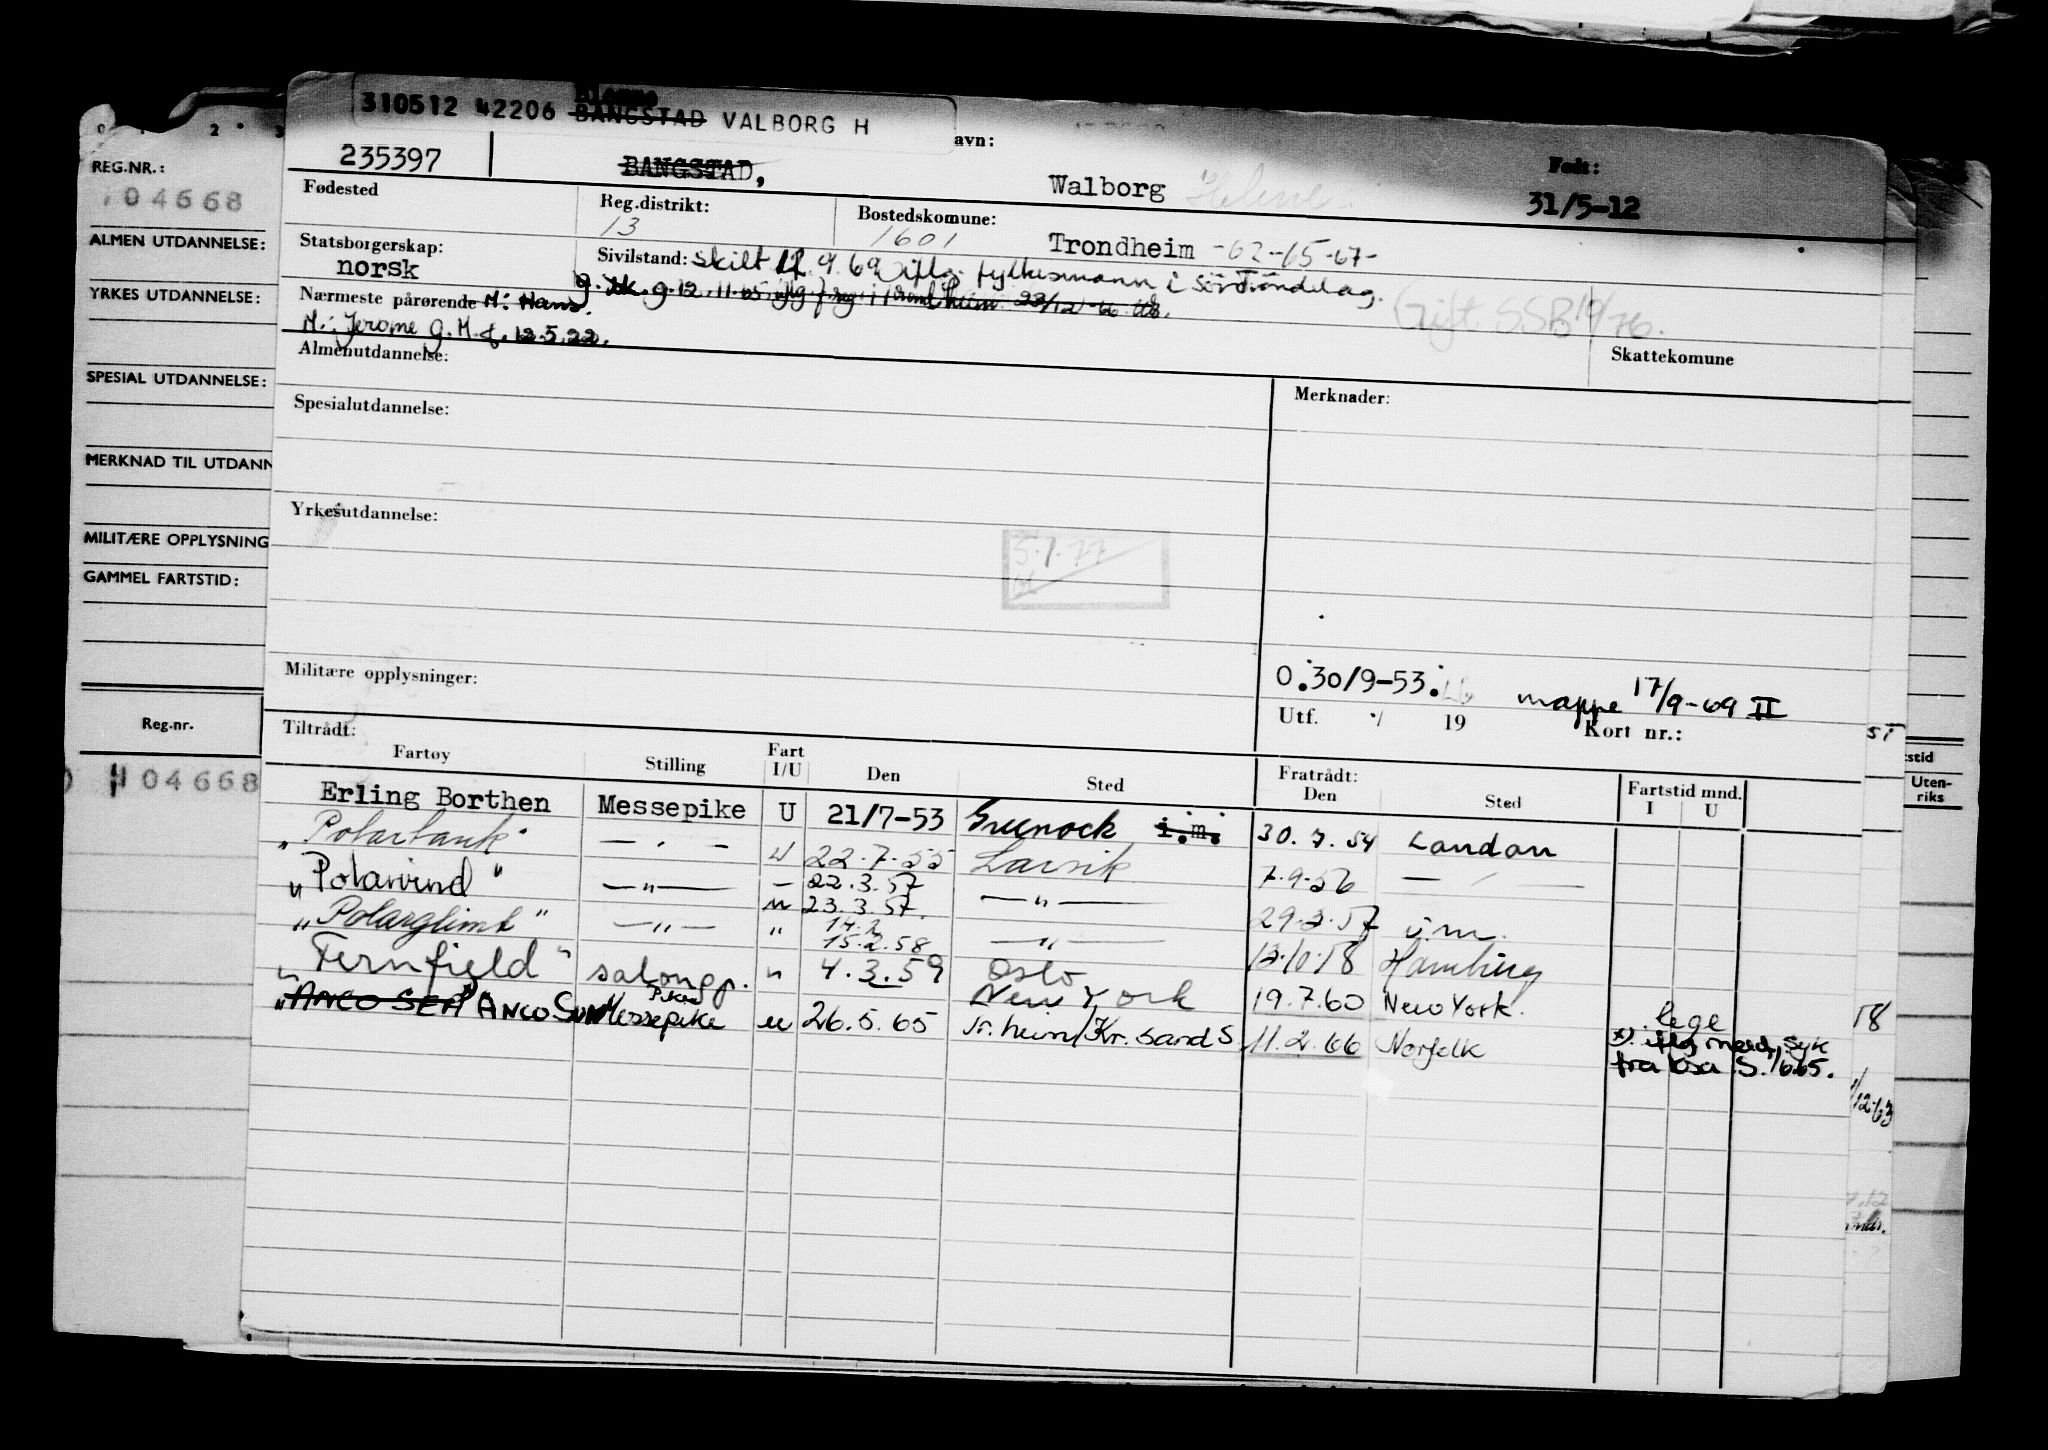 310512 42206 BANGSTAD VALBORG H
avn:
Født:
235397 BANGSTAD, Walborg Helene 31/5-12
Fødested
Reg.distrikt: 13
Bostedskomune: 1601 Trondheim -62-65-67-
Statsborgerskap: norsk
Sivilstand: Skilt 9.69 iflg. fylkesmann i Sör Tröndelag.
g. 9.12.11.65 iflg f.reg i Trondheim 23/12-66
Gift SSB 10/76.
Nærmeste pårørende M: Hans.
M: Jerome G.M. f. 12.5.22.
Skattekomune
Almenutdannelse:
Merknader:
Spesialutdannelse:
Yrkesutdannelse:
5.1.77
Militære opplysninger:
O.30/9-53.
mappe 17/9-69 II
Utf. / 19 Kort nr.:
Tiltrådt:
Fartøy Stilling Fart I/U Den Sted Fratrådt: Den Sted Fartstid mnd. I U
Erling Borthen Messepike U 21/7-53 Greenock i.m. 30.7.54 London
"Polartank" — " — U 22.7.55 Larvik 7.9.56 — " —
"Polarvind" — " — 22.3.57 23.3.57. — " — 29.3.57 i.m.
"Polarglimt" — " — " 14.2 15.2.58 — " — 13.10.58 Hamburg
"Fernfield" salongp. " 4.3.59 Oslo New York 19.7.60 New York.
"ANCO SEA" ANCO SUN Messepike u 26.5.65 Tr.heim/Kr.sand S. 11.2.66 Norfolk
lege
x) iflg meld, syk
fra Krsa S. /665.
REG.NR.:
104668
ALMEN UTDANNELSE:
YRKES UTDANNELSE:
SPESIAL UTDANNELSE:
MERKNAD TIL UTDANN
MILITÆRE OPPLYSNING
GAMMEL FARTSTID:
Reg.nr.
104668
51
stid
Uten-
riks
18
/12-63
7.12